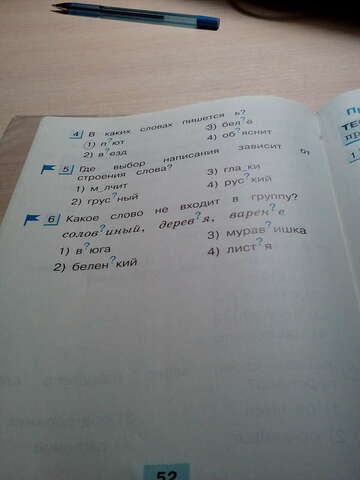 4 В каких словах пишется ь?
1) п?ют
3) бел?ё
2) в?езд
4) об?яснит
5 Где выбор написания зависит от
строения слова?
1) м_лчит
3) гла_ки
2) грус?ный
4) рус?кий
6 Какое слово не входит в группу?
солов?иный, дерев?я, варен?е
1) в?юга
3) мурав?ишка
2) белен?кий
4) лист?я
52